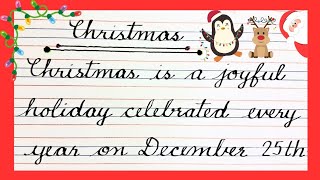 Christmas
Christmas is a joyful
holiday celebrated every
year on December 25th